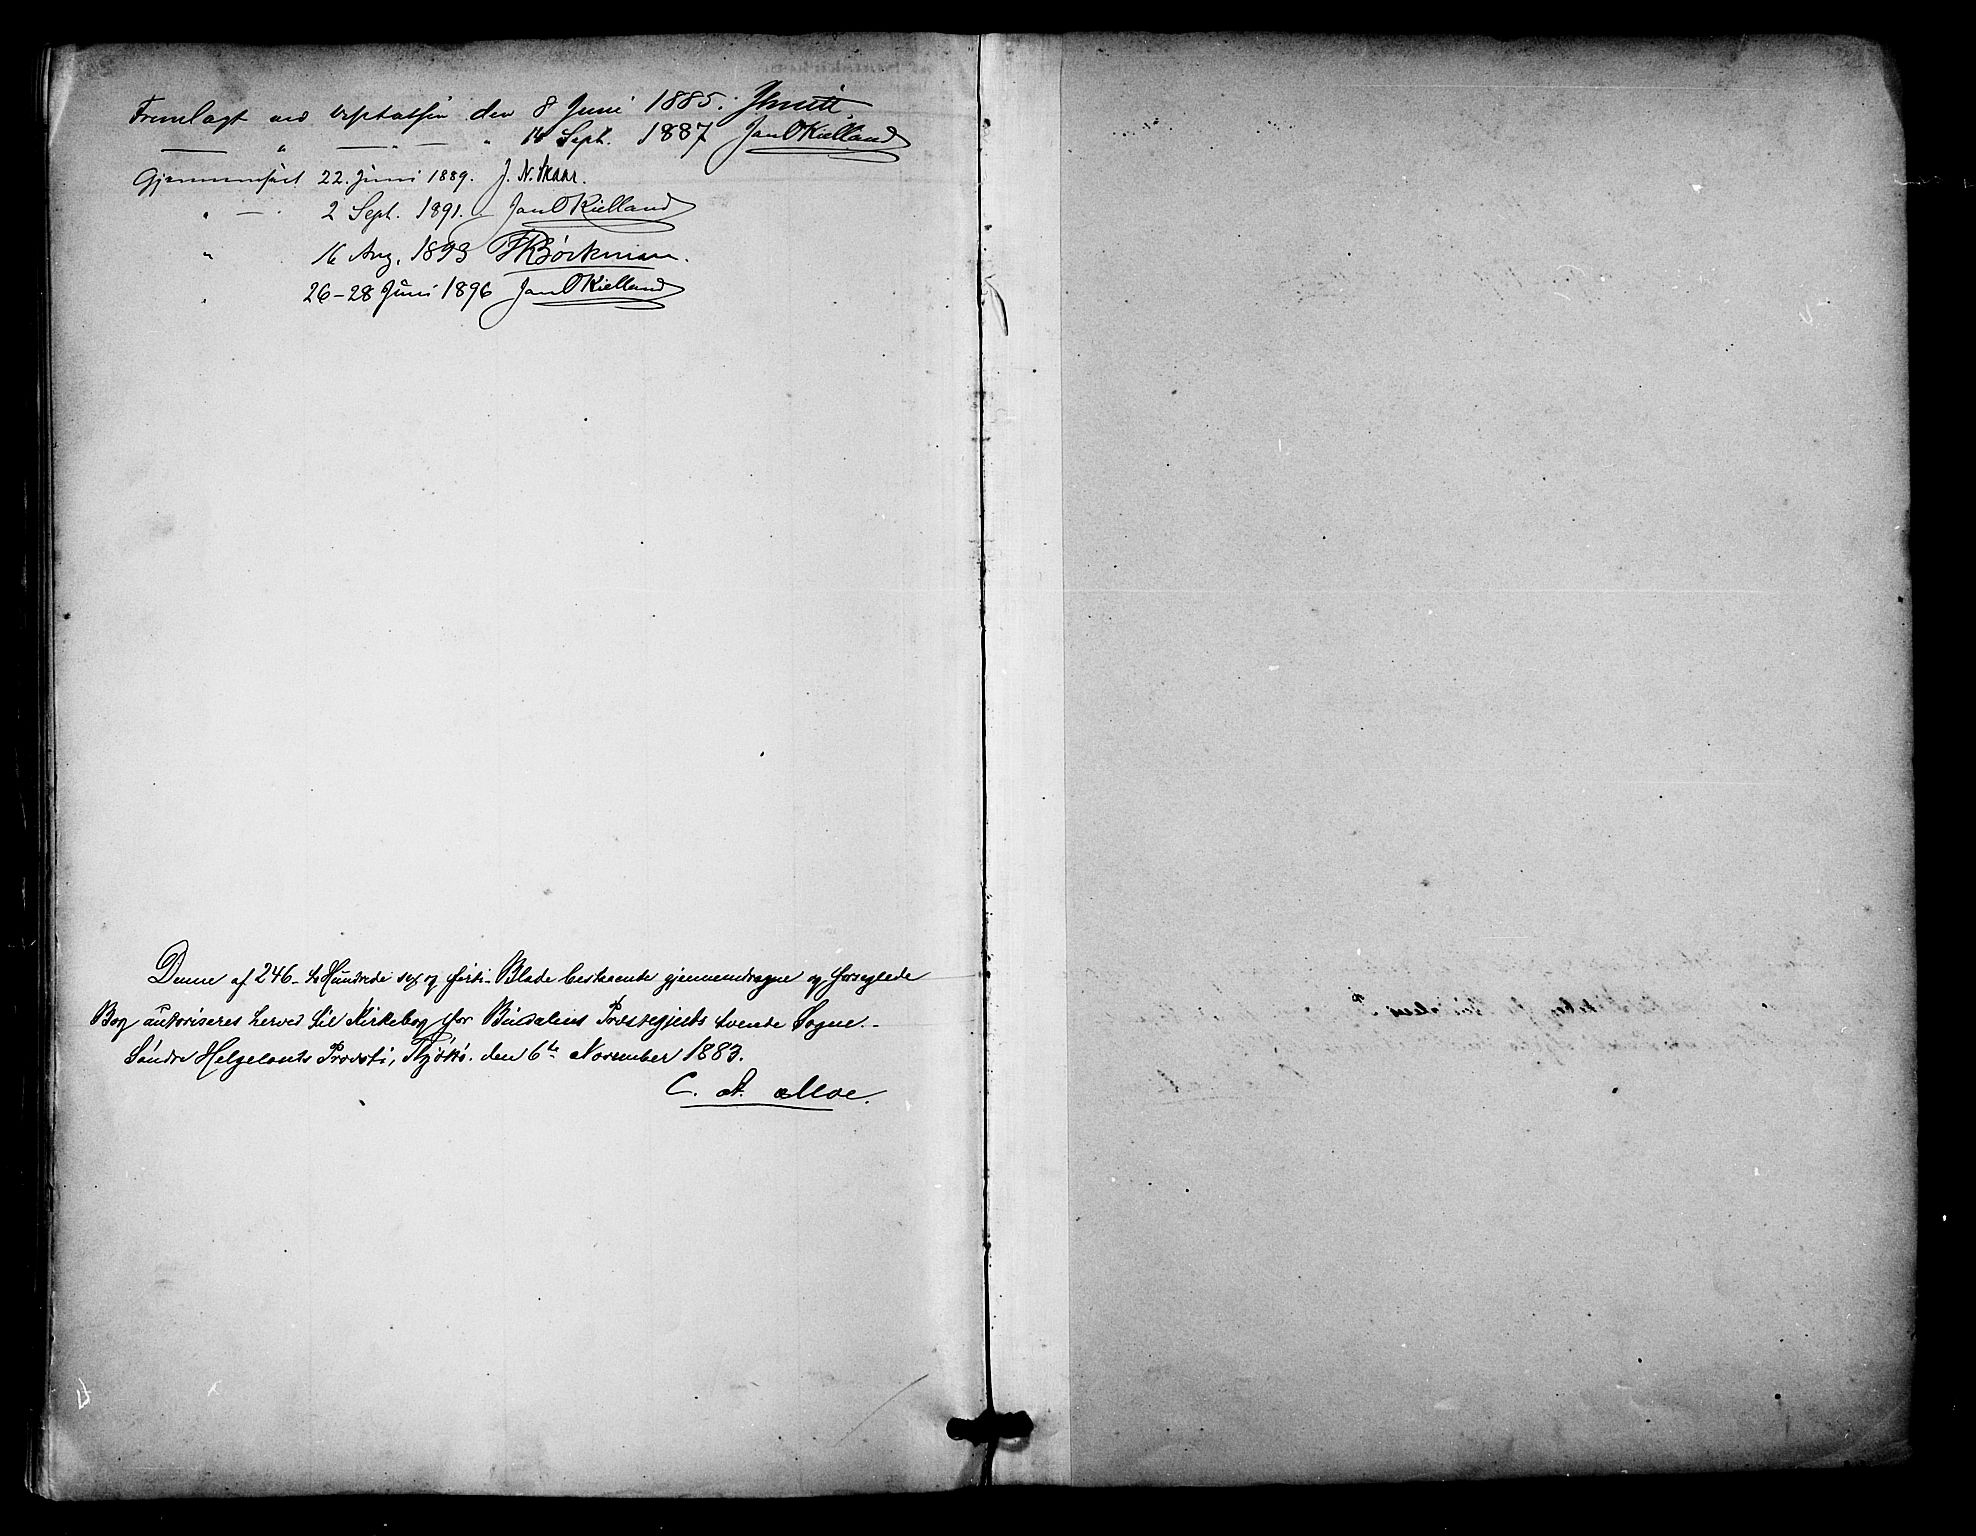 Fremlagt ved Visitatsen den 8 Juni 1885.
— " — " — " 14 Sept. 1887 Jan O Kielland
Gjennemseet 22. Juni 1889. J. N. Skaar.
" — . 2 Sept. 1891. Jan O Kielland
" 16 Aug. 1893 Bøckman.
" 26-28 Juni 1896 Jan O Kielland
Denne af 246 - to Hundrede sex ogførti - Blade bestaaende gjennemdragne og forseglede
Bog autoriseres herved til Kirkebog for Bindalens Præstegjelds tvende Sogne. -
Søndre Helgelands Provsti, den 6te November 1883.
C. A. Moe.